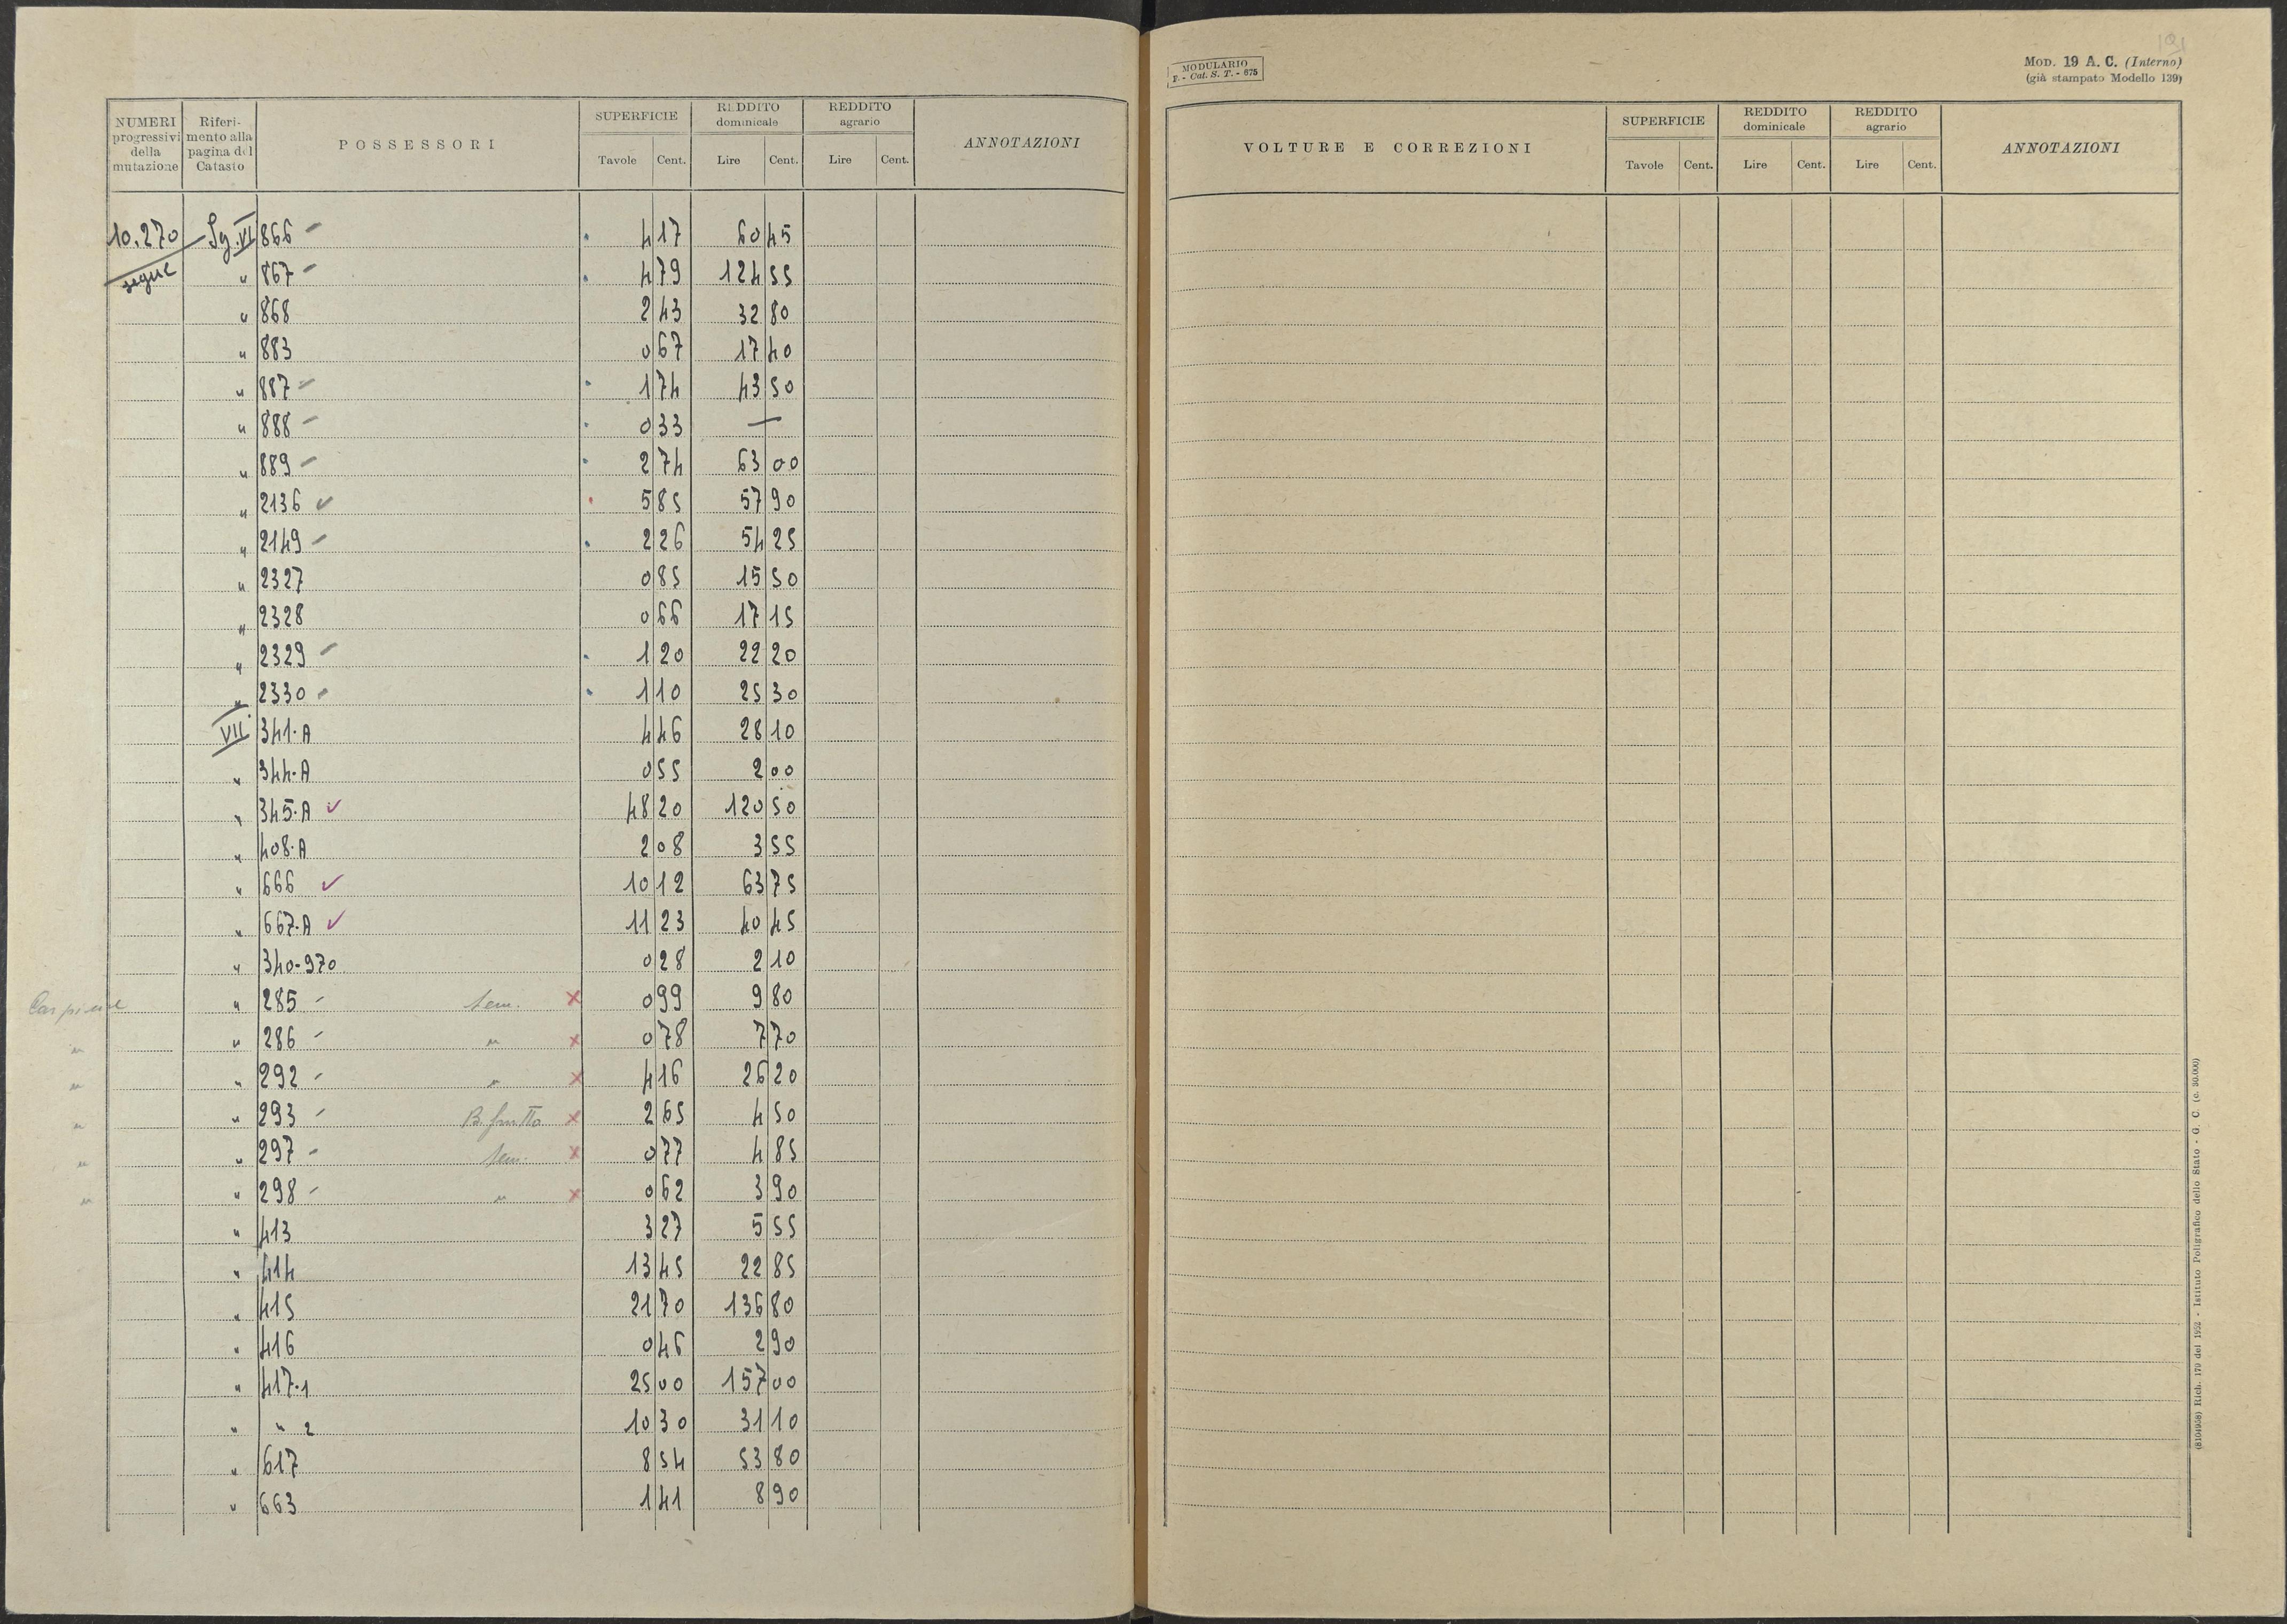 NUMERI progressivi della mutazione | Riferimento alla pagina del Catasto | POSSESSORI | SUPERFICIE Tavole Cent. | REDDITO dominicale Lire Cent. | REDDITO agrario Lire Cent. | ANNOTAZIONI
10.270 Sg. VI 866 4 17 60 45
segue " 867 4 79 124 55
" 868 2 43 32 80
" 883 0 67 17 40
" 887 1 74 43 50
" 888 0 33 —
" 889 2 74 63 00
" 2136 ✓ 5 85 57 90
" 2149 2 26 54 25
" 2327 0 85 15 50
" 2328 0 66 17 15
" 2329 1 20 22 20
" 2330 1 10 25 30
VII 341·A 4 46 28 10
" 344·A 0 55 2 00
" 345·A ✓ 48 20 120 50
" 408·A 2 08 3 55
" 666 ✓ 10 12 63 75
" 667·A ✓ 11 23 40 45
" 340-970 0 28 2 10
" 285 - Sem. × 0 99 9 80
" " 286 - " × 0 78 7 70
" " 292 - " × 4 16 26 20
" " 293 - B. frutto × 2 65 4 50
" " 297 - Sem. × 0 77 4 85
" " 298 - " × 0 62 3 90
" 413 3 27 5 55
" 414 13 45 22 85
" 415 21 70 136 80
" 416 0 46 2 90
" 417·1 25 00 157 00
" " 2 10 30 31 10
" 617 8 54 53 80
" 663 1 41 8 90
MODULARIO
F. - Cat. S. T. - 675
MOD. 19 A. C. (Interno)
(già stampato Modello 139)
VOLTURE E CORREZIONI | SUPERFICIE Tavole Cent. | REDDITO dominicale Lire Cent. | REDDITO agrario Lire Cent. | ANNOTAZIONI
(8104958) Rich. 179 del 1952 - Istituto Poligrafico dello Stato - G. C. (c. 30.000)